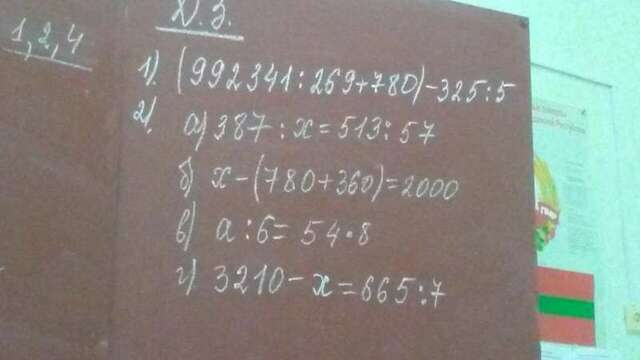 1,2,4
Д.З.
1). (992341:269+780)-325:5
2).
а) 387:x=513:57
б) x-(780+360)=2000
в) a:6=54·8
г) 3210-x=665:7